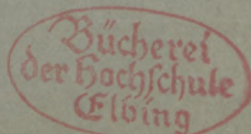 Bücherei
der Hochschule
Elbing